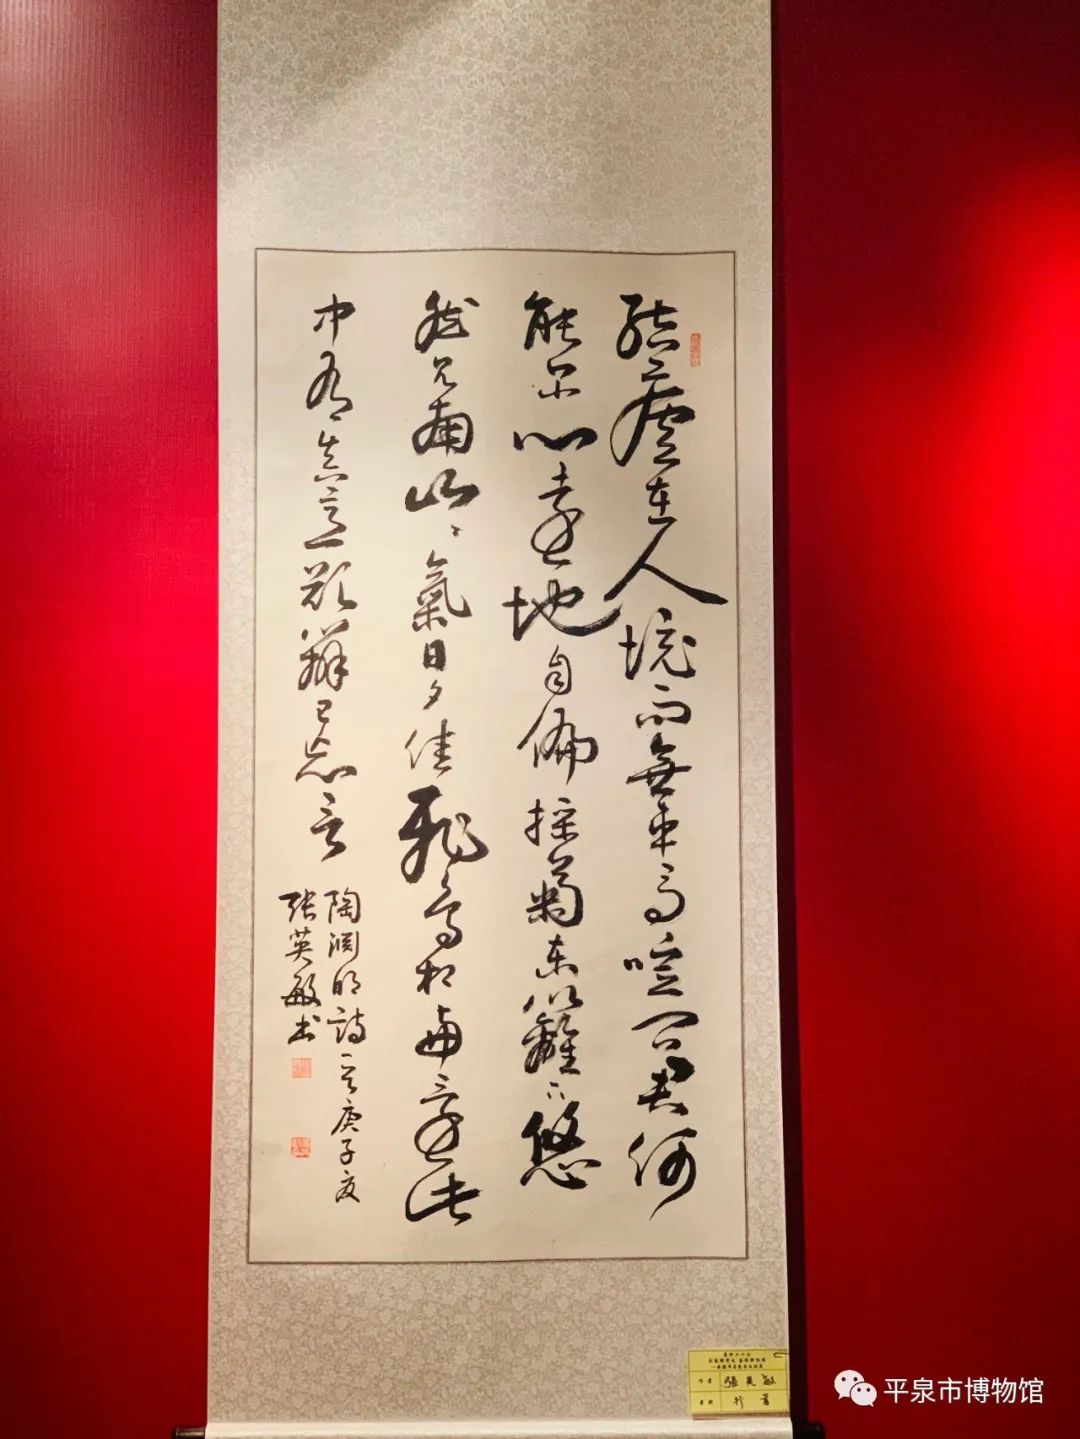 结廬在人境而無车马喧问君何
能尔心遠地自偏採菊东籬下悠
然见南山〻氣日夕佳飛鸟相与還此
中有真意欲辨已忘言
陶渊明詩一首庚子夏
张英敏书
作者 張英敏
行書
平泉市博物馆